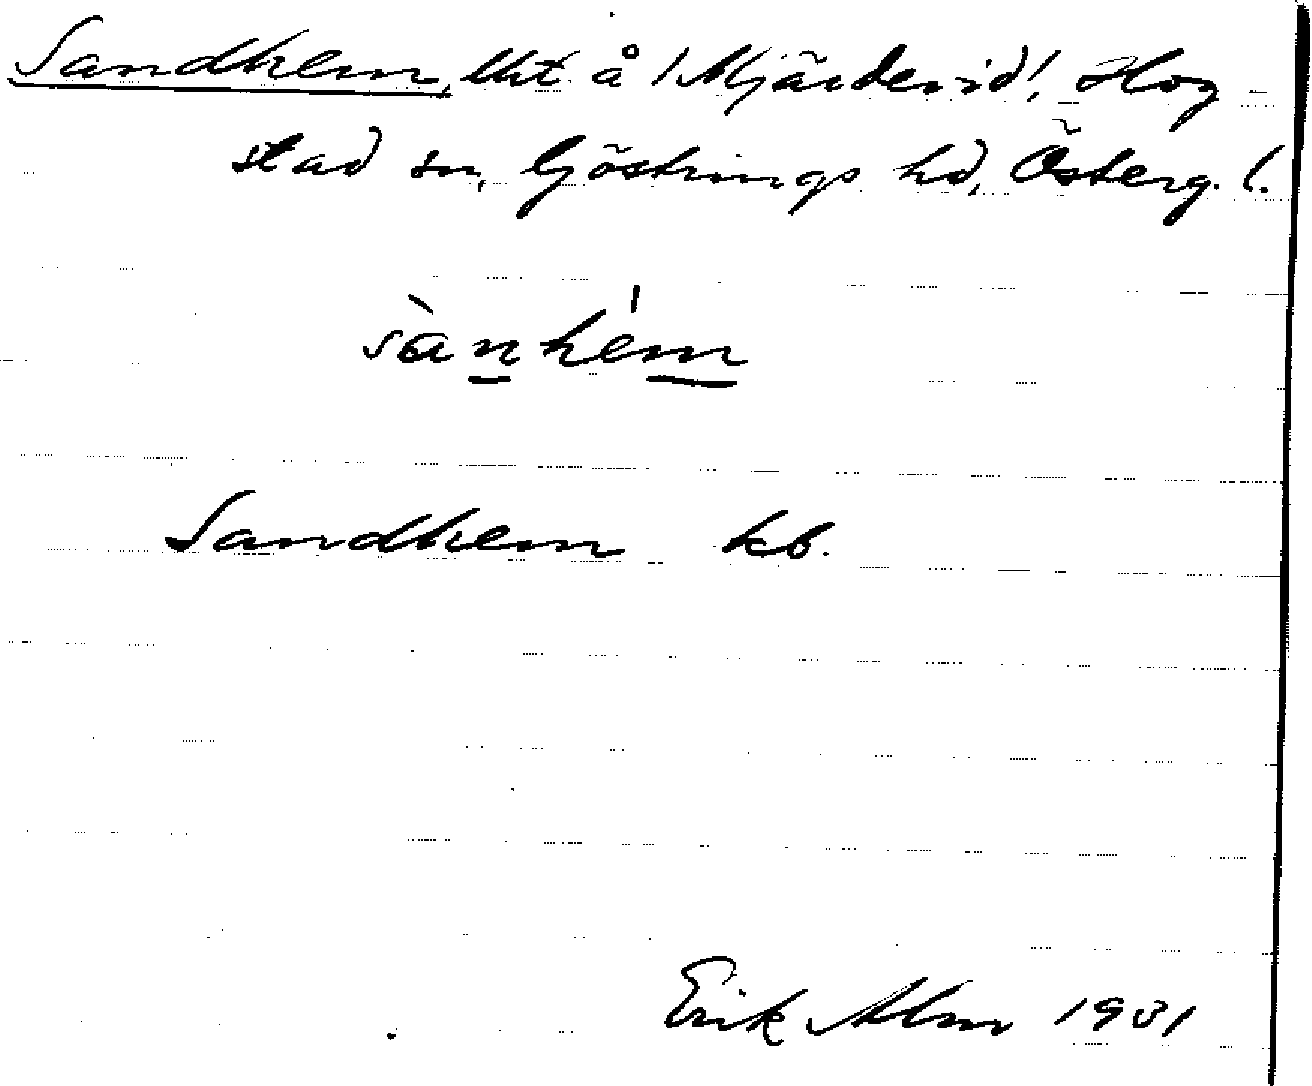 Sandhem, lht å /Mjärdevid/, Hog-
stad sn, Göstrings hd, Österg. l.
sànhém
Sandhem kb.
Erik Alm 1931